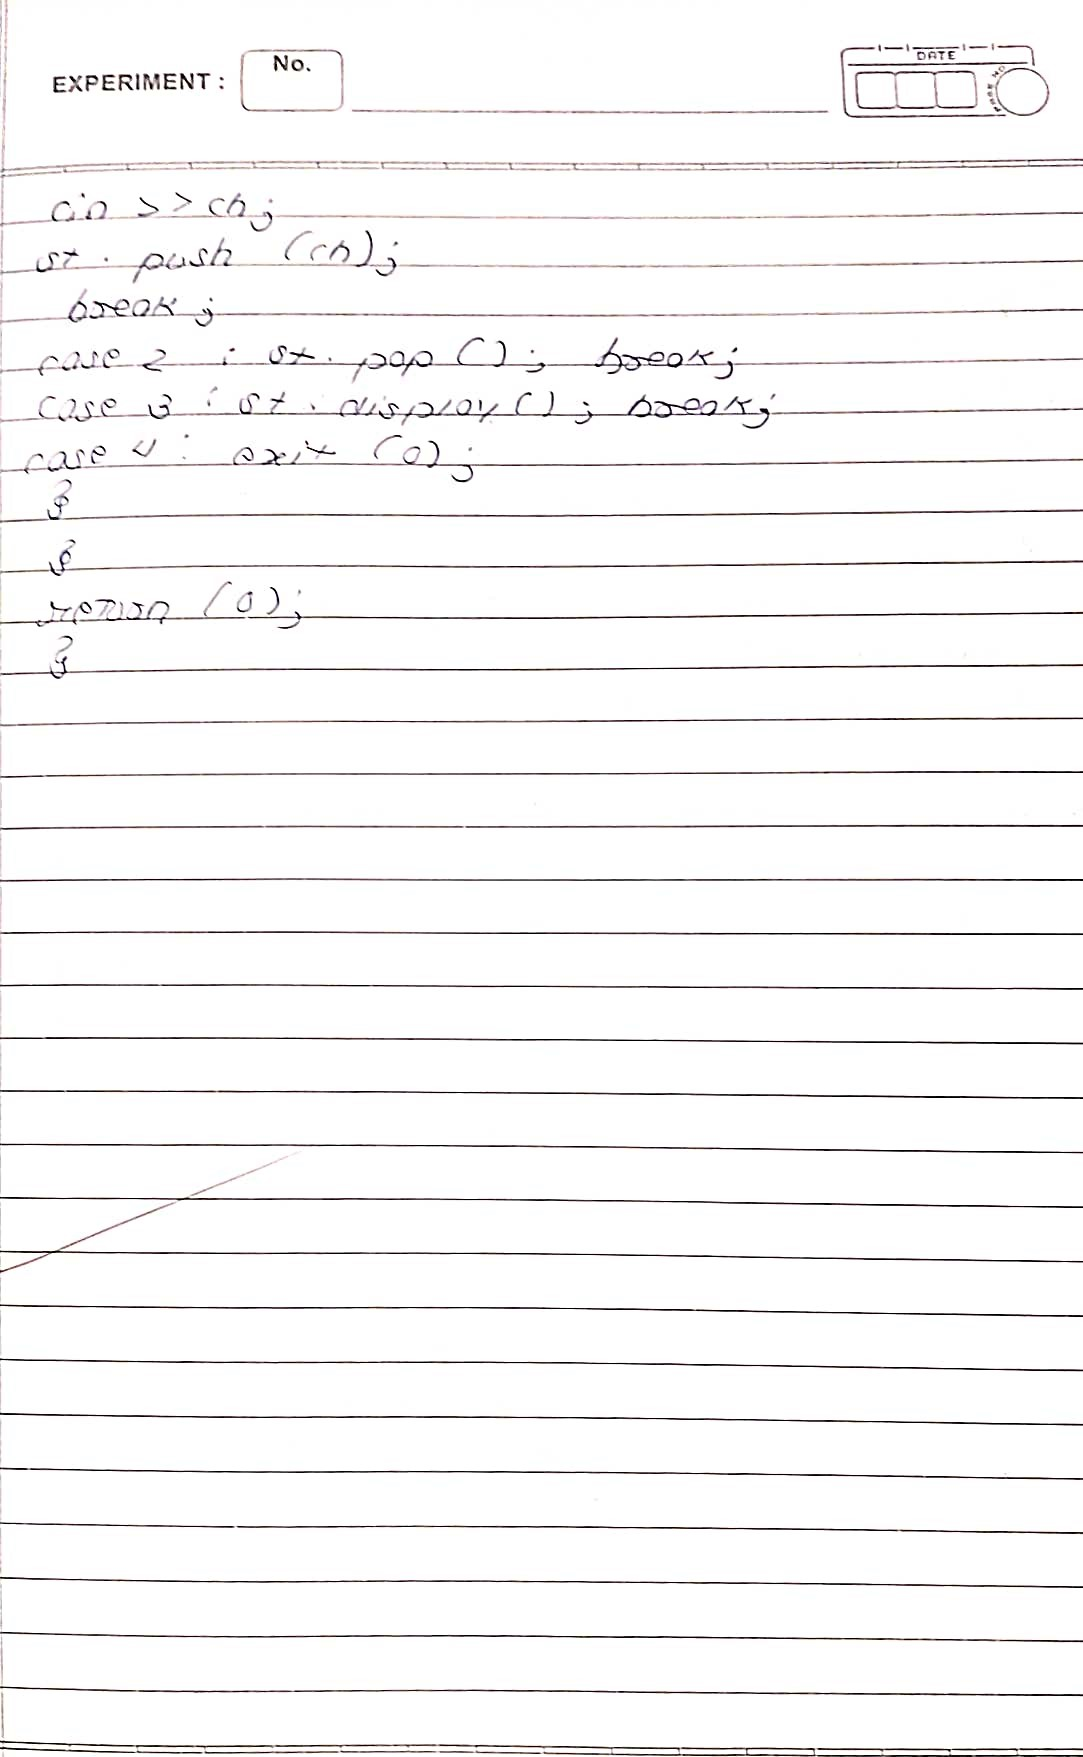 EXPERIMENT :
No.
DATE
cin >> ch;
st. push (ch);
break;
case 2 : st. pop (); break;
case 3 : st. display (); break;
case 4 : exit (0);
}
}
return (0);
}